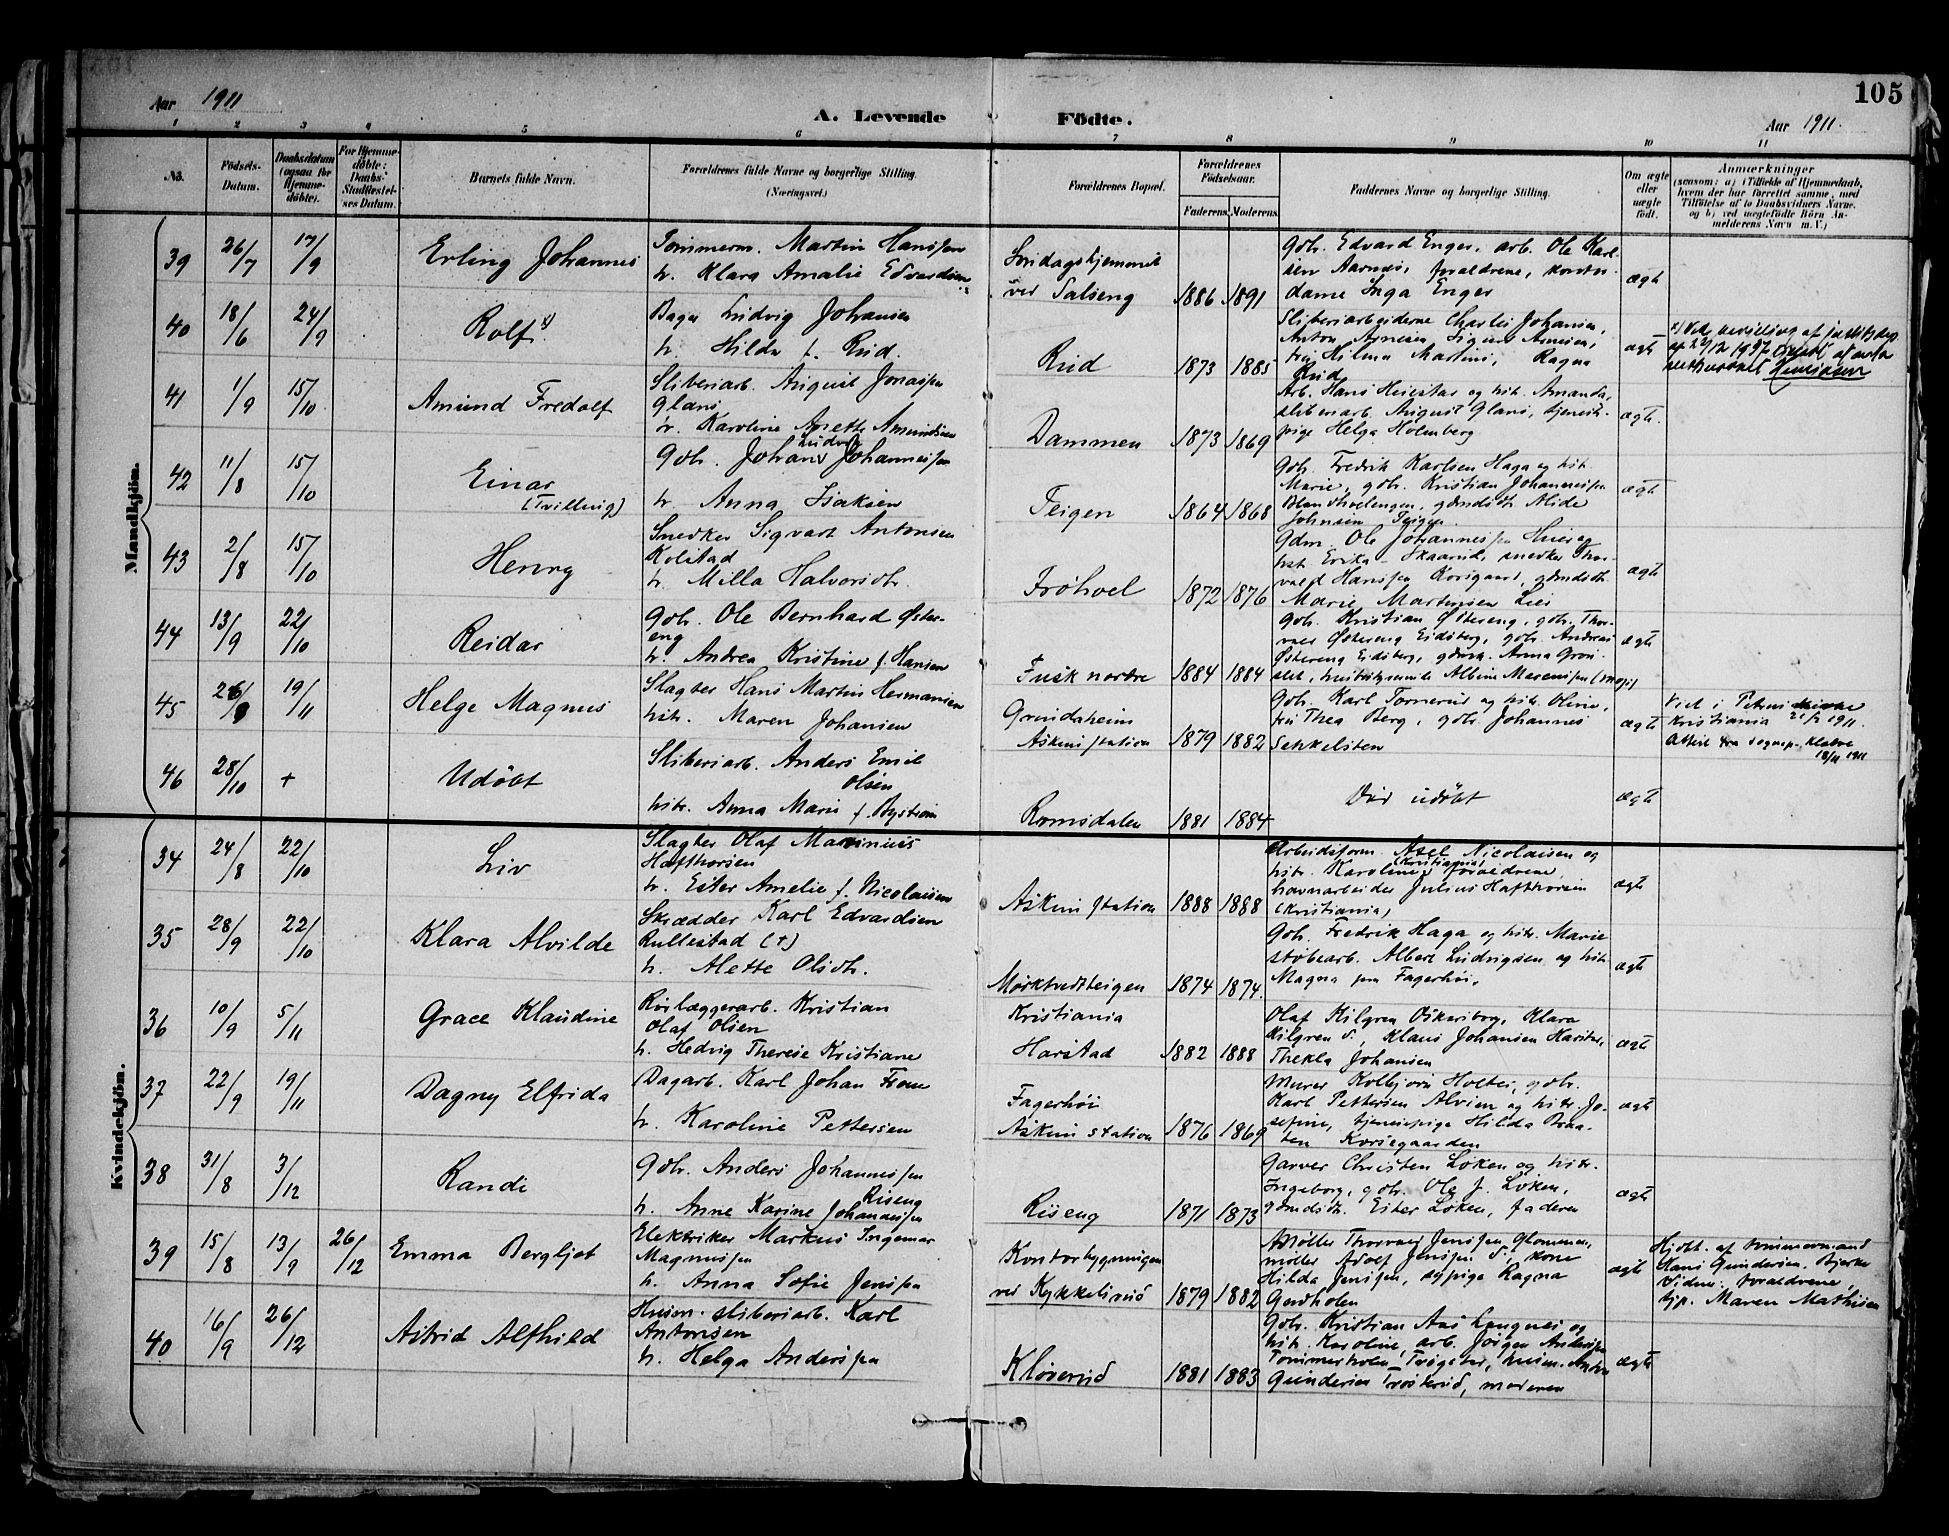 105
Aar 1911
A. Levende Födte.
Aar 1911.
1 2 3 4 5 6 7 8 9 10 11
No.
Födsels-
Datum.
Daabsdatum
(ogsaa for
Hjemme-
döbte).
For Hjemme-
döbte:
Daabs-
Stadfæstel-
ses Datum.
Barnets fulde Navn.
Forældrenes fulde Navne og borgerlige Stilling.
(Næringsvei.)
Forældrenes Bopæl.
Forældrenes
Födselsaar.
Faderens. Moderens.
Faddernes Navne og borgerlige Stilling.
Om ægte
eller
uægte
födt.
Anmærkninger
(saasom: a) i Tilfælde af Hjemmedaab,
hvem der har forrettet samme, med
Tilföielse af to Daabsvidners Navne,
og b) ved uægtefödte Börn An-
melderens Navn m. V.)
Mandkjön.
39 26/7 17/9 Erling Johannes
Tømmerm. Martin Hanssen
h. Klara Amalie Edvardsen
Søndagshjemmet
ved Salseng 1886 1891
Gbr. Edvard Enger, arb. Ole Karl-
sen Aarnes, forældrene, kontor-
dame Inga Enger
ægte
40 18/6 24/9 Rolf x)
Bager Ludvig Johansen
h. Hilda f. Rud.
Rud 1873 1885
Sliberiarbeiderne Charles Johansen,
Anton Agnesen Sigurd Amesen,
fru Hilma Martins, Ragna
Rud
ægte
x) Ved bevilling af
22/12 1937
Henriksen
41 1/9 15/10 Amund Fredolf
Sliberiarb. August Jonassen
Glans
h. Karoline Anette Amundsen
Dammen 1873 1869
Arb. Hans Huiestas og hst. Amanda,
sliberiarb. August Glans, tjeneste-
pige Helga Holmberg
ægte.
42 11/8 15/10 Einar
(Tvilling)
Gbr. Johan Ludvig Johannessen
h. Anna Isaksen
Teigen 1864 1868
Gbr. Fredrik Karlsen Haga og hst.
Marie, gbr. Kristian Johannessen
gbrndsdt. Alide
Johnsen Teigen
ægte
43 2/8 15/10 Henry
Snedker Sigvart Antonsen
Kolstad
h. Milla Halvorsdtr.
Frøhoel 1872 1876
Gdm. Ole Johannessen
hst. Erika Skaarud, snedker Thor-
vald Hanssen Korsgaard, gbrndsdt.
Marie Martinsen Lies
ægte
44 13/9 22/10 Reidar
Gbr. Ole Bernhard Øster-
eng
h. Andrea Kristine f. Hansen
Fusk nordre 1884 1884
Gbr. Kristian Østereng, gbr. Thor-
vald Østereng Eidsberg, gbr. Andreas
Østereng Eidsberg, Anna Grøn-
slet, Albine Marensen
ægte
45 26/8 19/11 Helge Magnus
Slagter Hans Martin Hermansen
hstr. Maren Johansen
Grindaheim
Askim station 1879 1882
Gbr. Karl Tornerud og hst. Oline,
fru Thea Berg, gbr. Johannes
Sekkelsten
ægte
Viet i Petrus kirke
Kristiania 1911.
Attest fra sognep. Klaue
18/11 1911
46 28/10 + Udöbt
Sliberiarb. Anders Emil
Olsen
hstr. Anna Marie f. Bystrøm
Romsdalen 1881 1884
Død udöbt
ægte
Kvindekjön.
34 24/8 22/10 Liv
Slagter Olaf Marinius
Hafthorsen
h. Ester Amelie f. Nicolaisen
Askim station 1888 1888
Arbeidsform. Axel Nicolaisen og
hstr. Karoline (Kristiania), forældrene,
havnarbeider Julius Hafthorsen
(Kristiania)
ægte
35 28/9 22/10 Klara Alvilde
Skrædder Karl Edvardsen
Rullestad (+)
h. Alette Olsdtr.
Mørktvedtteigen 1874 1874.
Gbr. Fredrik Haga og hstr. Marie
støbearb. Albert Ludvigsen og hstr.
Magna Fagerhöi.
ægte
36 10/9 5/11 Grace Klaudine
Rørlæggerarb. Kristian
Olaf Olsen
h. Hedvig Therese Kristiane
Kristiania
Harstad 1882 1888
Olaf Kilgren Oskarsborg, Klara
Kilgren S., Klaus Johansen Harstad,
Thekla Johansen
ægte
37 22/9 19/11 Dagny Elfrida
Dagarb. Karl Johan From
h. Karoline Pettersen
Fagerhöi
Askim station 1876 1869
Murer Kolbjørn Holter, gbr.
Karl Pettersen Alvien og hstr. Jo-
sefine, tjenestepige Hilda Braa-
ten Korsegaarden
ægte
38 31/8 3/12 Randi
Gbr. Anders Johannessen
Riseng
h. Anne Karine Johannessen
Riseng 1871 1873
Garver Christen Løken og hstr.
Ingeborg, gbr. Ole J. Løken,
gbrndsdt. Ester Løken, faderen
ægte
39 15/8 13/9 26/12 Emma Bergljot
Elektriker Markus Ingemar
Magnussen
h. Anna Sofie Jenssen
Kontorbygningen
ved Kykkelsrud 1879 1882
Møller Thorvald Jenssen Glommen,
møller Adolf Jenssen S., kone
Hilda Jenssen, sypige Ragna
Gudholen
ægte
Hjdbt. af tømmermand
Hans Gundersen Bjerke
Vidner: forældrene,
tjp. Maren Mathisen
40 16/9 26/12 Astrid Alfhild
Husm. sliberiarb. Karl
Antonsen
h. Helga Anderssen
Kløverud 1881 1883
Gbr. Kristian Aas Langnes og
hstr. Karoline, arb. Jørgen Anderssen
Tømmerholen Trøgstad, husm. Anton
Gundersen Trøskerud, moderen
ægte